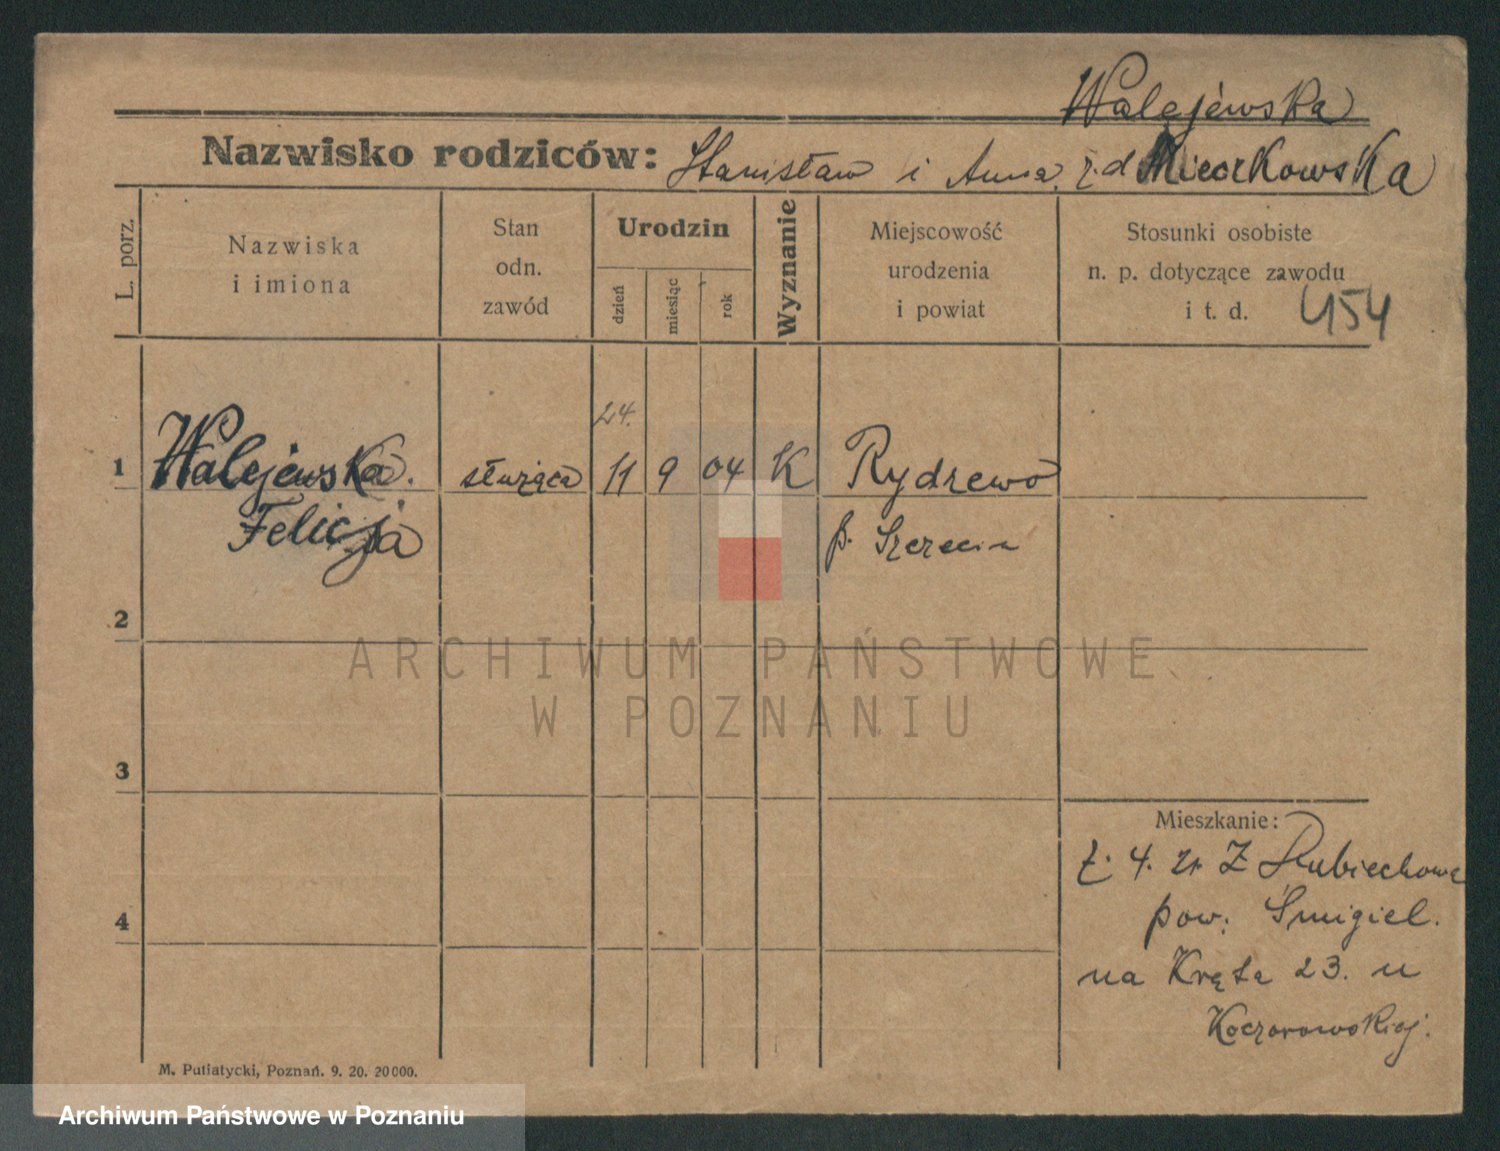 Walejewska
Nazwisko rodziców: Stanisław i Anna z.d
L. porz.
Nazwiska
i imiona
Stan
odn.
zawód
Urodzin
dzień
miesiąc
rok
Wyznanie
Miejscowość
urodzenia
i powiat
Stosunki osobiste
n. p. dotyczące zawodu
i t. d. 454
24.
1 Walejewska służąca 11 9 04 K Rydzewo
Felicja p. Szczecin
2
ARCHIWUM PAŃSTWOWE
W POZNANIU
3
Mieszkanie:
4. Z
4 pow. Śmigiel.
na Kręta 23. u
Koczorowskiej.
M. Putiatycki, Poznań. 9. 20. 20000.
Archiwum Państwowe w Poznaniu